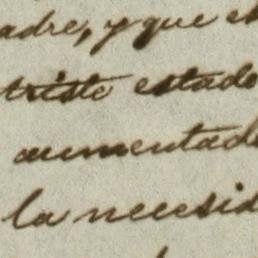 adre, y que e
triste estado
aumentado
la necesid